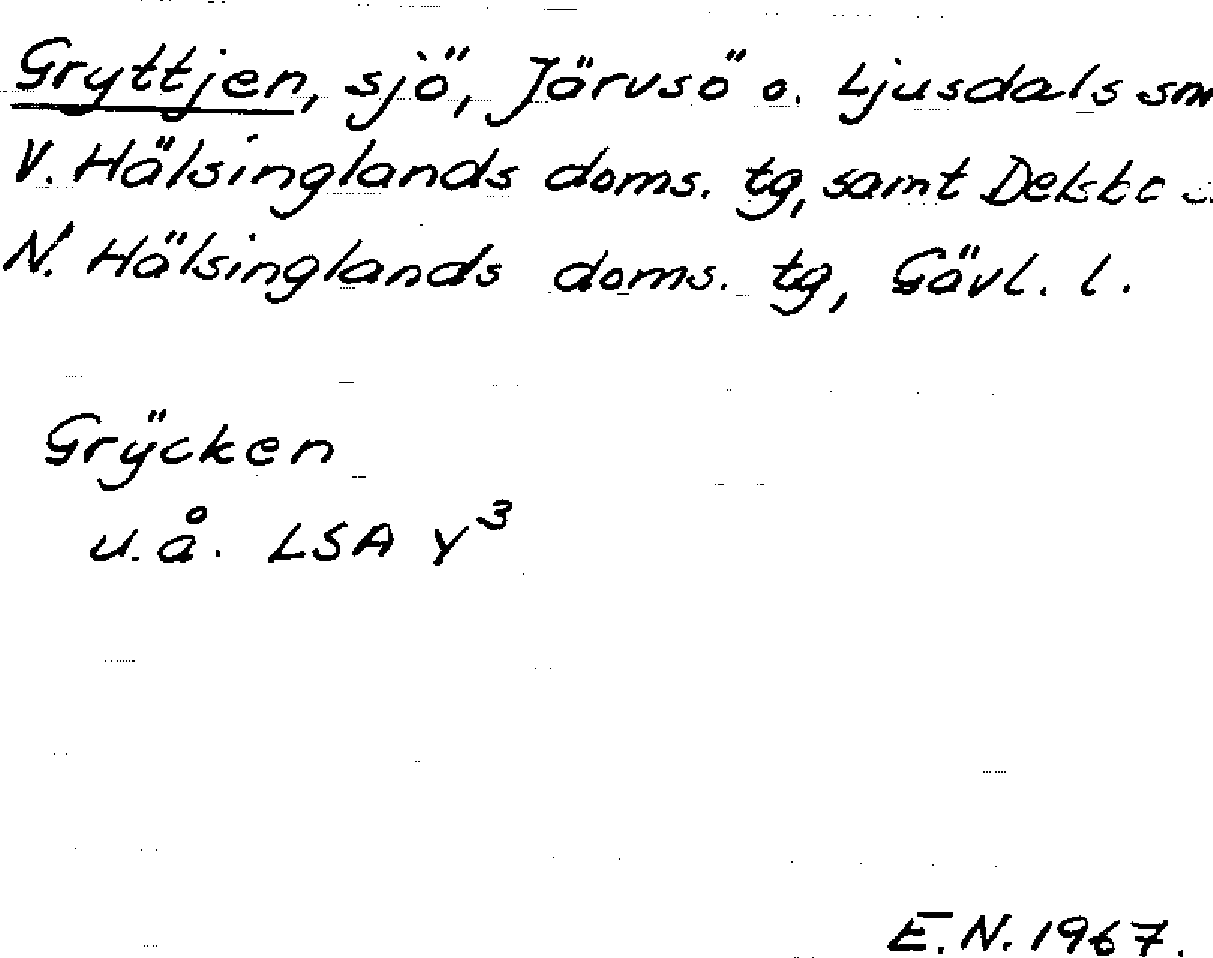 Gryttjen, sjö, Järvsö o. Ljusdals sm
V. Hälsinglands doms. tg, samt Delsbo
N. Hälsinglands doms. tg, Gävl. l.
Grÿcken
u.å. LSA Y³
E.N. 1967.